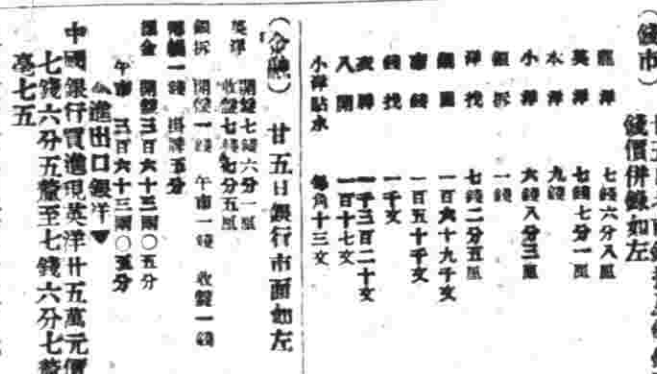 （錢市）
錢價併錄如左
龍洋 七錢六分八厘
英洋 七錢七分一厘
本洋 九錢
小洋 六錢八分三厘
銀拆 一錢
洋找 七錢二分五厘
銅圓 一百六十九千文
市錢 一百五十千文
錢找 一千文
衣牌 一千三百二十文
八開 一百十七文
小洋貼水 每角十三文
（金融） 廿五日銀行市面如左
英洋 開盤七錢六分一厘
收盤七錢七分五厘
銀拆 開盤一錢 午市一錢 收盤一錢
一錢 掛牌五分
標金 開盤三百六十三兩〇五分
午市 三百六十三兩〇五分
進出口銀洋
中國銀行買進現英洋廿五萬元價
七錢六分五釐至七錢六分七釐
毫七五